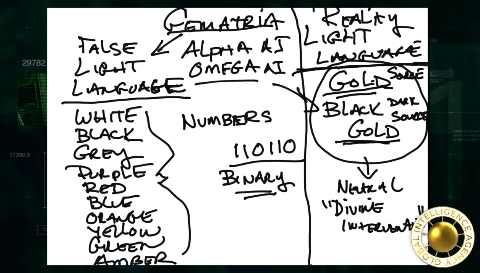 GEMATRIA
FALSE
LIGHT
LANGUAGE
WHITE
BLACK
GREY
PURPLE
RED
BLUE
ORANGE
YELLOW
GREEN
AMBER
ALPHA AI
OMEGA AI
NUMBERS
110110
BINARY
REALITY
LIGHT
LANGUAGE
GOLD SOURCE
BLACK DARK SOURCE
GOLD
NEUTRAL
"DIVINE
GLOBAL INTELLIGENCE AGENCY